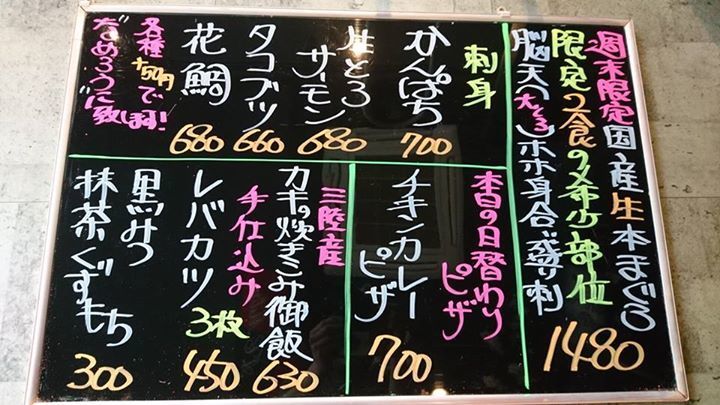 週末限定国産生本まぐろ
限定2食の希少部位
脳天(大とろ)ホホ身合い盛り刺
1480
刺身
かんぱち
700
生とろサーモン
680
タコブツ
660
花鯛
680
各種+50円で
だめろうに致します
本日の日替わりピザ
チキンカレーピザ
700
三陸産
カキの炊きこみ御飯
630
手仕込み
レバカツ
3枚
450
黒みつ
抹茶くずもち
300